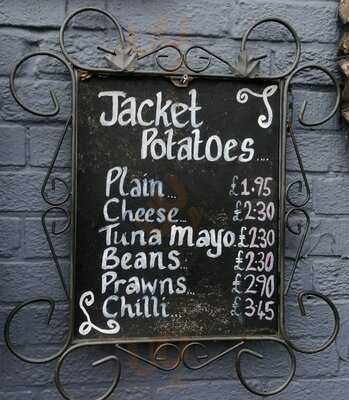 Jacket
Potatoes....
Plain... £1.95
Cheese... £2.30
Tuna Mayo. £2.30
Beans... £2.30
Prawns... £2.90
Chilli... £3.45